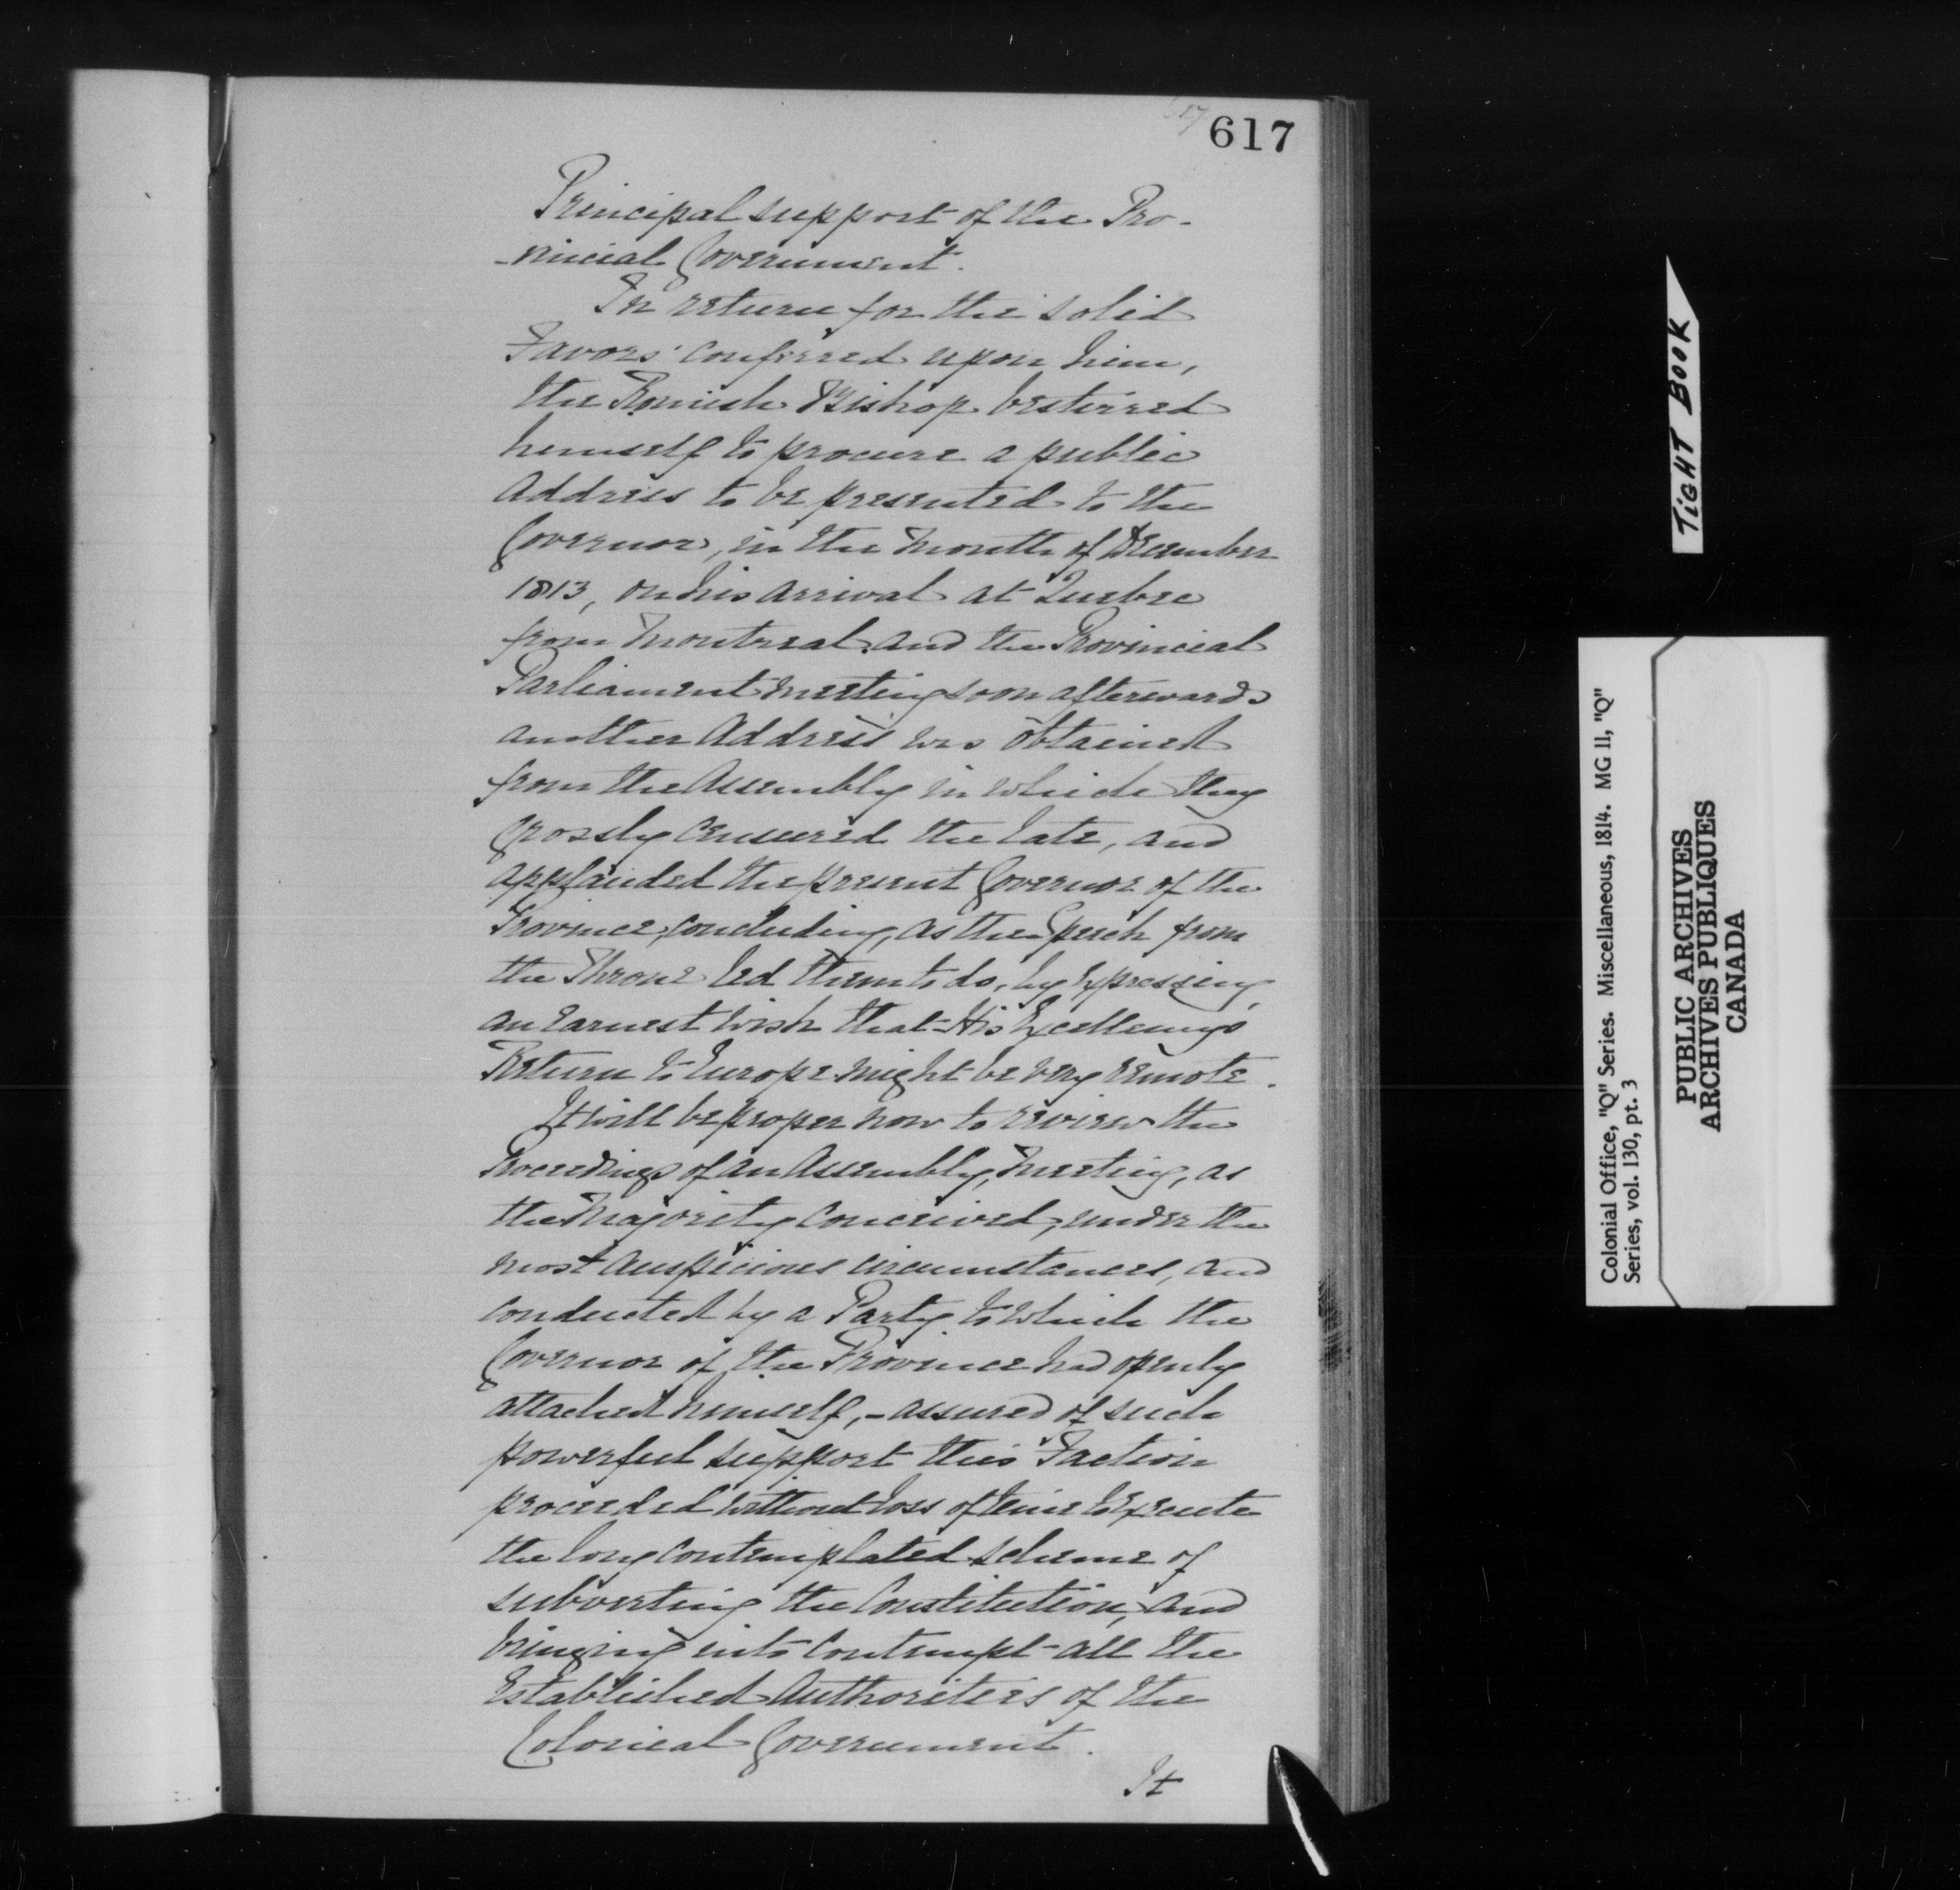 617
617
Principal support of the Pro-
-vincial Government.
In return for the solid
Favors conferred upon him,
the Romish Bishop bestirred
himself to procure a public
Address to be presented to the
Governor, in the Month of December
1813, on his arrival at Quebec
from Montreal and the Provincial
Parliament meeting soon afterwards
another Address was obtained
from the Assembly in which they
grossly censured the late, and
applauded the present Governor of the
Province, concluding, as the Speech from
the Throne led them to do, by Expressing,
an Earnest Wish that His Excellency's
Return to Europe might be very remote.
It will be proper now to review the
Proceedings of an Assembly, Meeting, as
the Majority Conceived, under the
most Auspicious circumstances, and
conducted by a Party to which the
Governor of the Province had openly
attached himself, - assured of such
powerful support this Faction
proceeded without loss of time to Execute
the long contemplated scheme of
subverting the Constitution, and
bringing into Contempt all the
Established Authorities of the
Colonial Government.
It
TIGHT BOOK
Colonial Office, "Q" Series. Miscellaneous, 1814. MG 11, "Q"
Series, vol. 130, pt. 3
PUBLIC ARCHIVES
ARCHIVES PUBLIQUES
CANADA